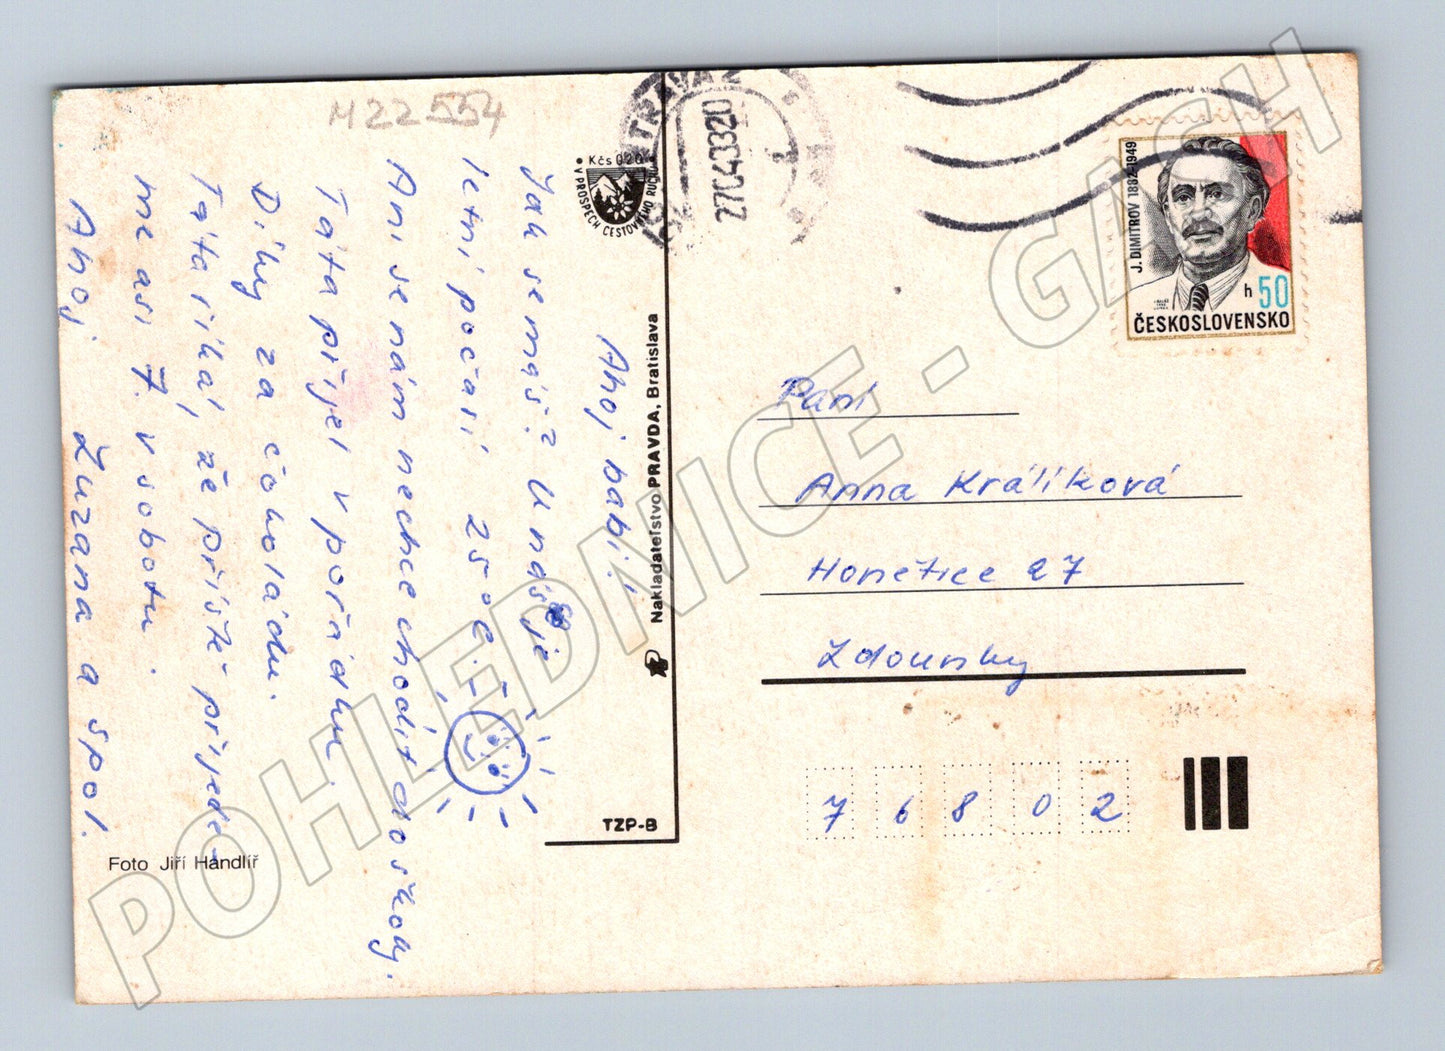 M22554
Ahoj babi!
Jak se máš? U nás je
letní počasí 25°C.
Ani se nám nechce chodit do školy.
Táta přijel v pořádku.
Díky za čokoládu.
Táta říkal, že příště přijede-
me asi 7. v sobotu.
Ahoj. Zuzana a spol.
Foto Jiří Handlíř
• Kčs 0,20 •
V PROSPECH CESTOVNÍHO RUCHU
Nakladateľstvo PRAVDA, Bratislava
TZP-B
OSTRAVA 2
J. DIMITROV 1882-1949
h 50
ČESKOSLOVENSKO
Paní
Anna Králíková
Honětice 27
Zdounky
76802
POHLEDNICE - GACH